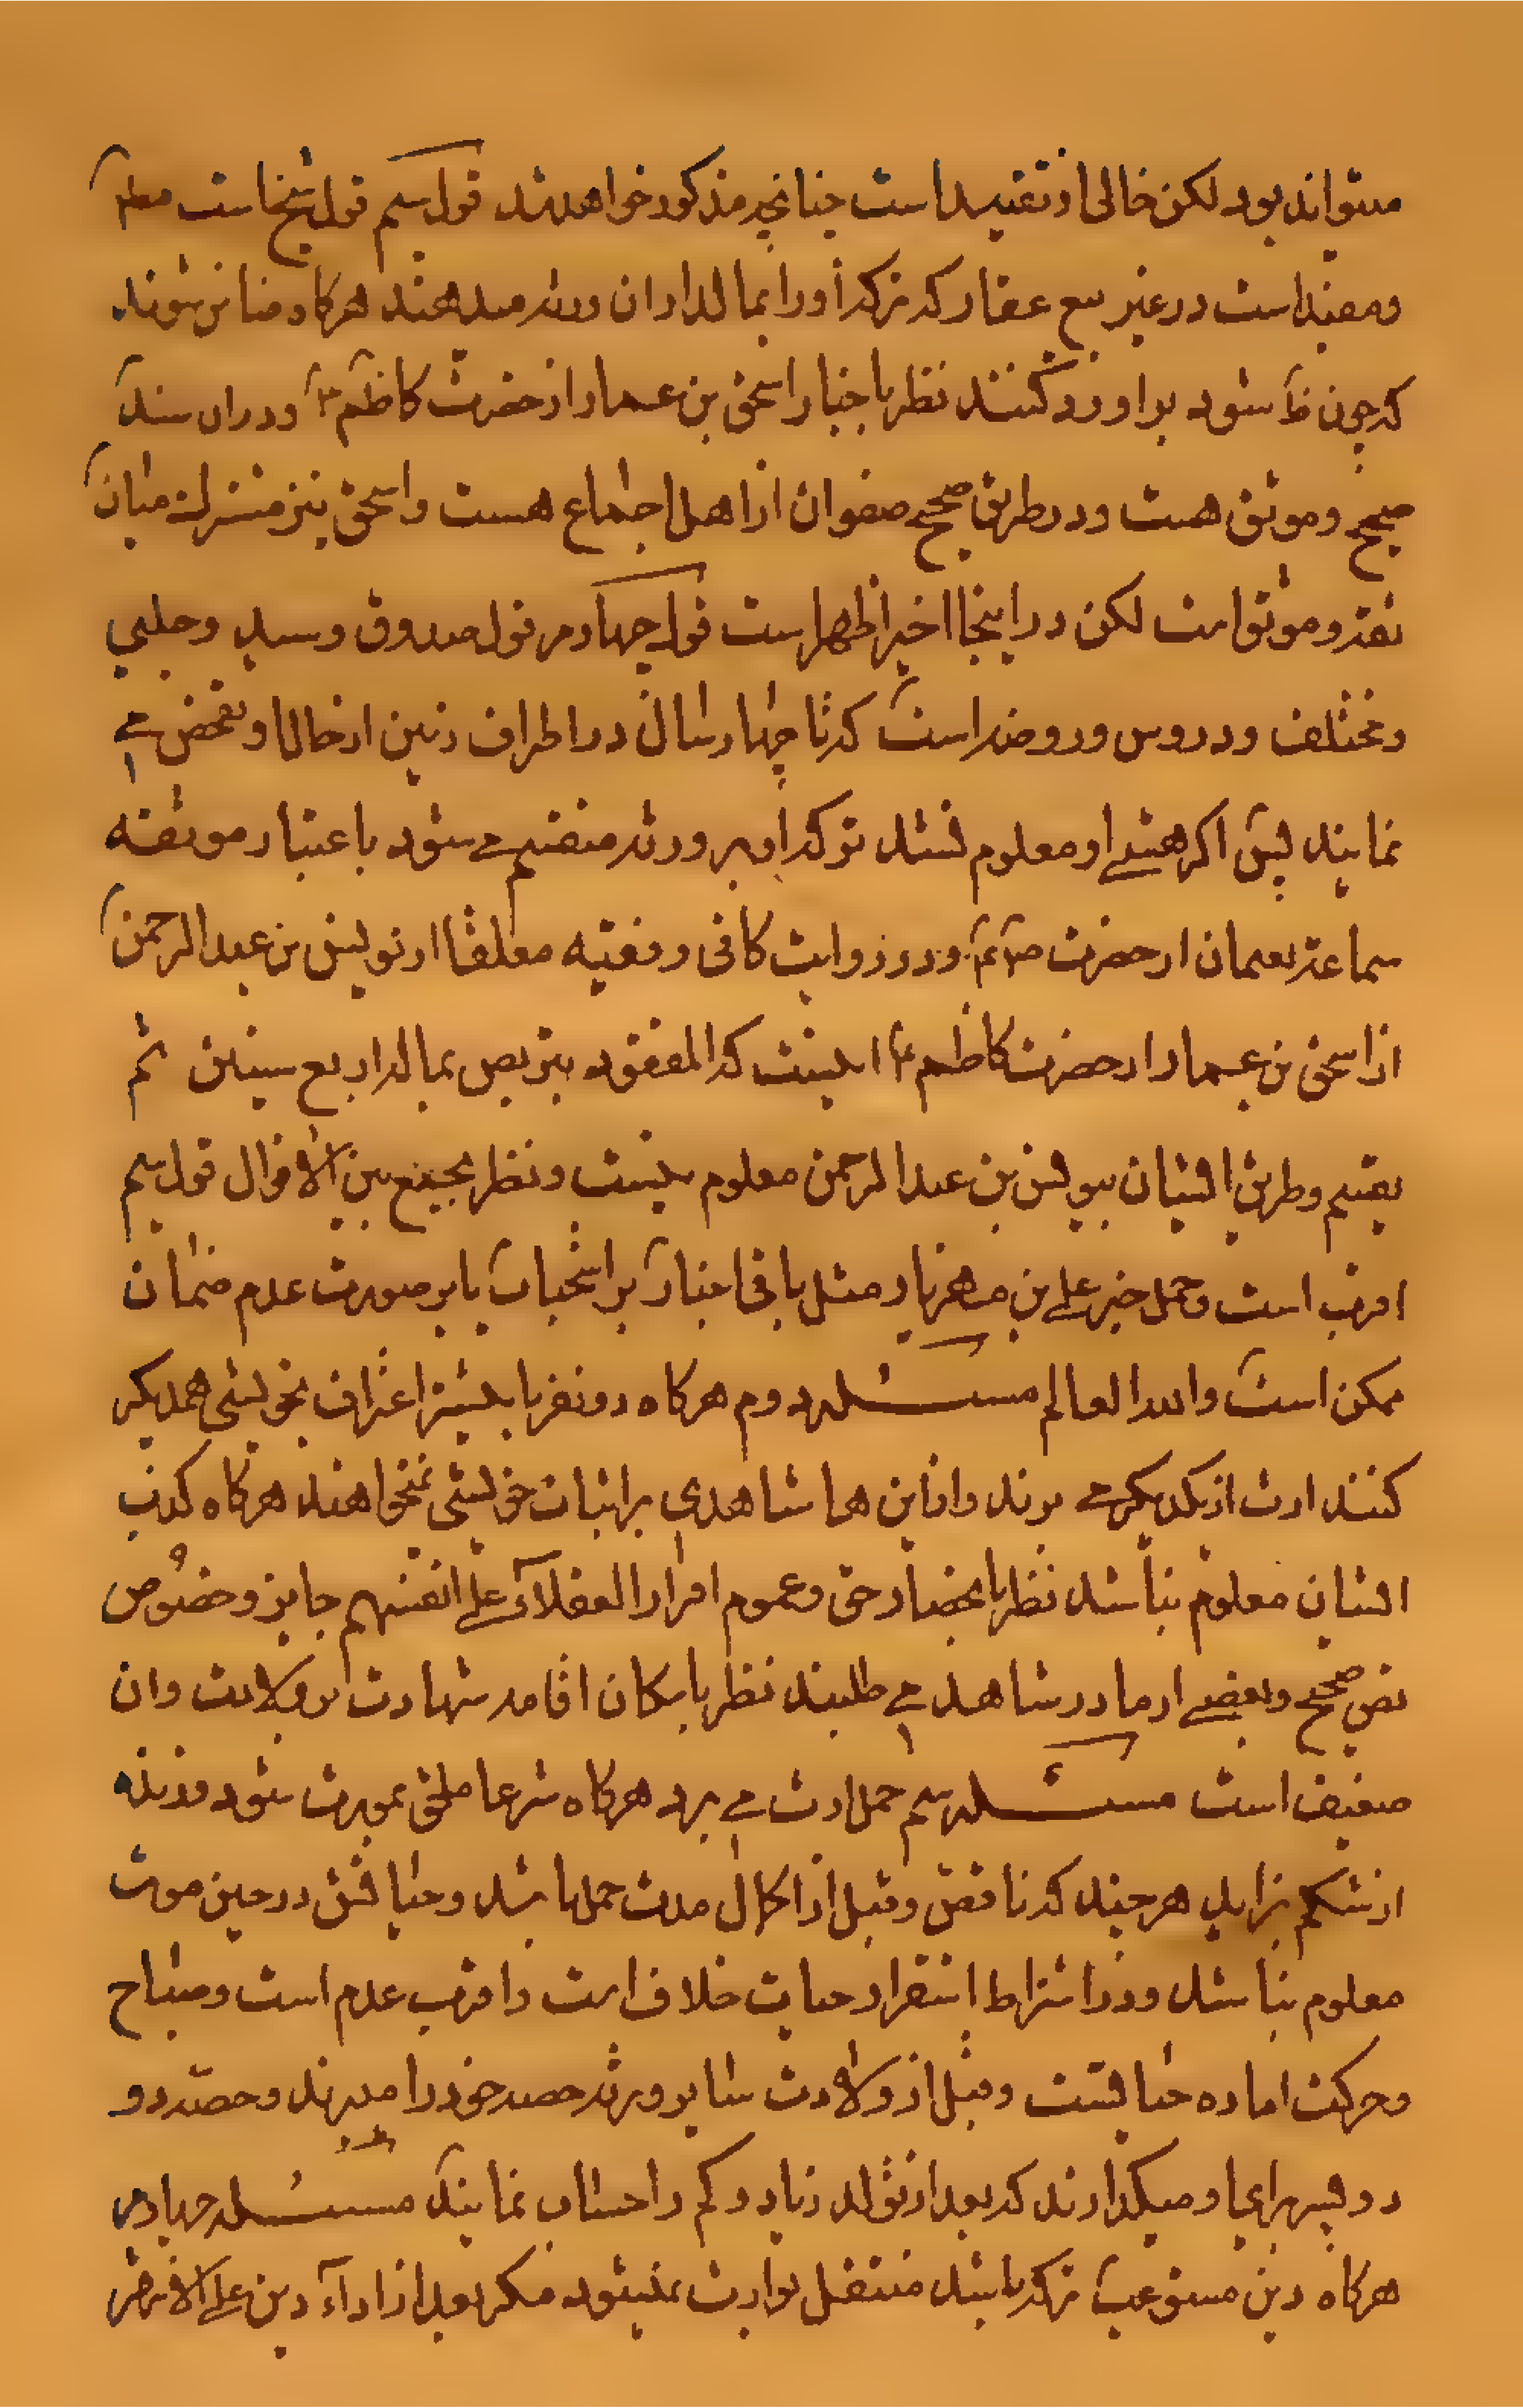 میتواند بود لکن خالی از تقیید است چنانچه مذکور خواهد شد قول سیم قول شیخ است
و مفید است در غیر بیع عقار که ترکه او را بمالداران ورثه میدهند هرگاه ضامن شوند
که چون ظ شود بر او رد کنند نظر باخبار اسحق بن عمار از حضرت کاظم ۴ و در ان سند
صحیح و موثق هست و در طریق صحیح صفوان از اهل اجماع هست و اسحق نیز مشترک میان
ثقه و موثق است لکن در اینجا اخیر اظهر است قول چهارم قول صدوق و سید و حلبی
و مختلف و دروس و روضه است که تا چهار سال در اطراف زمین از حال او تفحص می
نمایند پس اگر هستی او معلوم نشد ترکه او بر ورثه منقسم می شود باعتبار موثقه
سماعة بعمان از حضرت ص ۴ و در روایت کافی و فقیه معلقا از یونس بن عبدالرحمن
از اسحق بن عمار از حضرت کاظم ۴ اینست که المفقود یتربص بماله اربع سنین ثم
یقسم و طریق ایشان بیونس بن عبدالرحمن معلوم نیست و نظر بجمع بین الاقوال قول سیم
اقرب است و حمل خبر علی بن مهزیار مثل باقی اخبار بر استحباب یا بر صورت عدم ضمان
ممکن است والله العالم مسئله دوم هرگاه دو نفر یا بیشتر اعتراف بخویشی همدیگر
کنند ارث از یکدیگر می برند و از این ها شاهدی بر اثبات خویشی نمیخواهند هرگاه کذب
ایشان معلوم نباشد نظر بانحصار حق و عموم اقرار العقلاء علی انفسهم جایز و خصوص
نص صحیح و بعضی از مادر شاهد می طلبند نظر بامکان اقامه شهادت بر ولادت و ان
ضعیف است مسئله سیم حمل ارث می برد هرگاه شرعا ملحق بمورث شود و زنده
از شکم بزاید هر چند که ناقص و قبل از اکمال مدت حمل باشد و حیاتش در حین موت
معلوم نباشد و در اشتراط استقرار حیات خلاف است و اقرب عدم است و صیاح
و حرکت اماره حیاتست و قبل از ولادت سایر ورثه حصه خود را میبرند و حصه دو
دو پسر برای او میگذارند که بعد از تولد زیاد و کم را حساب نمایند مسئله چهارم
هرگاه دین مستوعب ترکه باشد منتقل بوارث نمیشود مگر بعد از اداء دین علی الاقرب